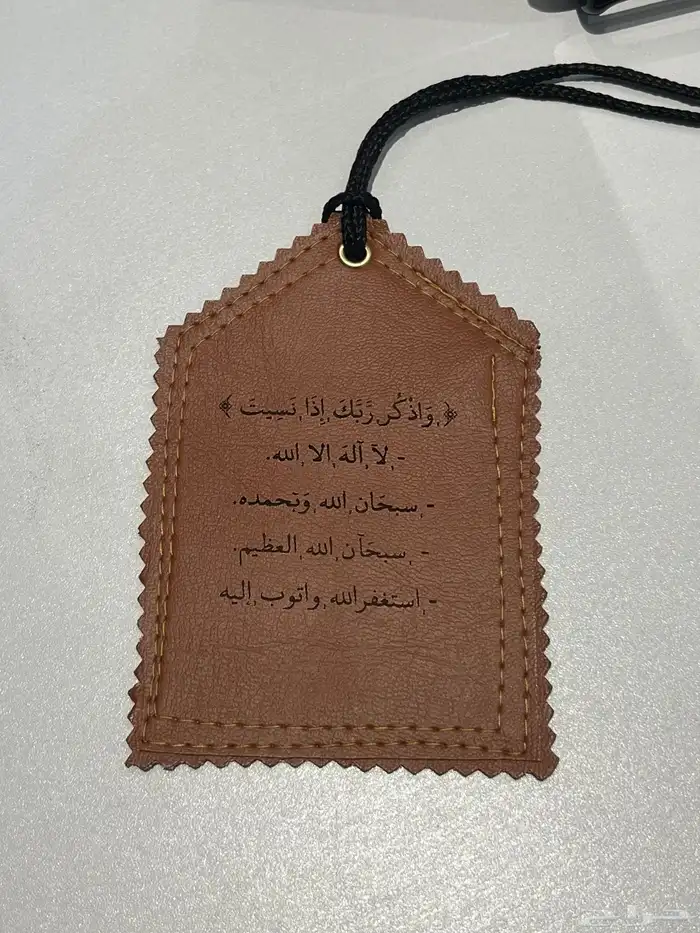 ﴿ وَاذْكُر رَّبَّكَ إِذَا نَسِيتَ ﴾
- لآ آلهَ إلا الله.
- سبحَان الله وَبَحمده.
- سبحَآن الله العظيم.
- استغفرالله واتوب إليه
حراج